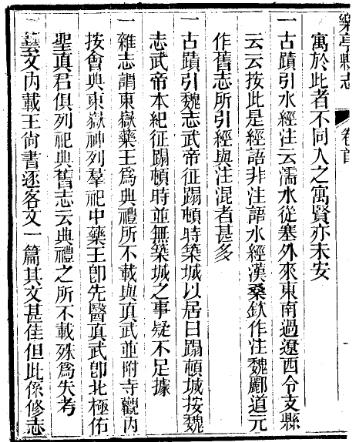 樂亭縣志 卷首
寓於此者不同人之寓賢亦未安
一古蹟引水經注云濡水從塞外來東南過遼西令支縣
云云按此是經語非注語水經漢桑欽作注魏酈道元
作舊志所引經與注混者甚多
一古蹟引魏志武帝征蹋頓時築城以居曰蹋頓城按魏
志武帝本紀征蹋頓時並無築城之事疑不足據
一雜志謂東嶽藥王爲典禮所不載與真武並附寺觀內
按會典東嶽神列羣祀中藥王卽先醫真武卽北極佑
聖真君俱列祀典舊志云典禮之所不載殊爲失考
一藝文內載王尚書逐客文一篇其文甚佳但此係修志